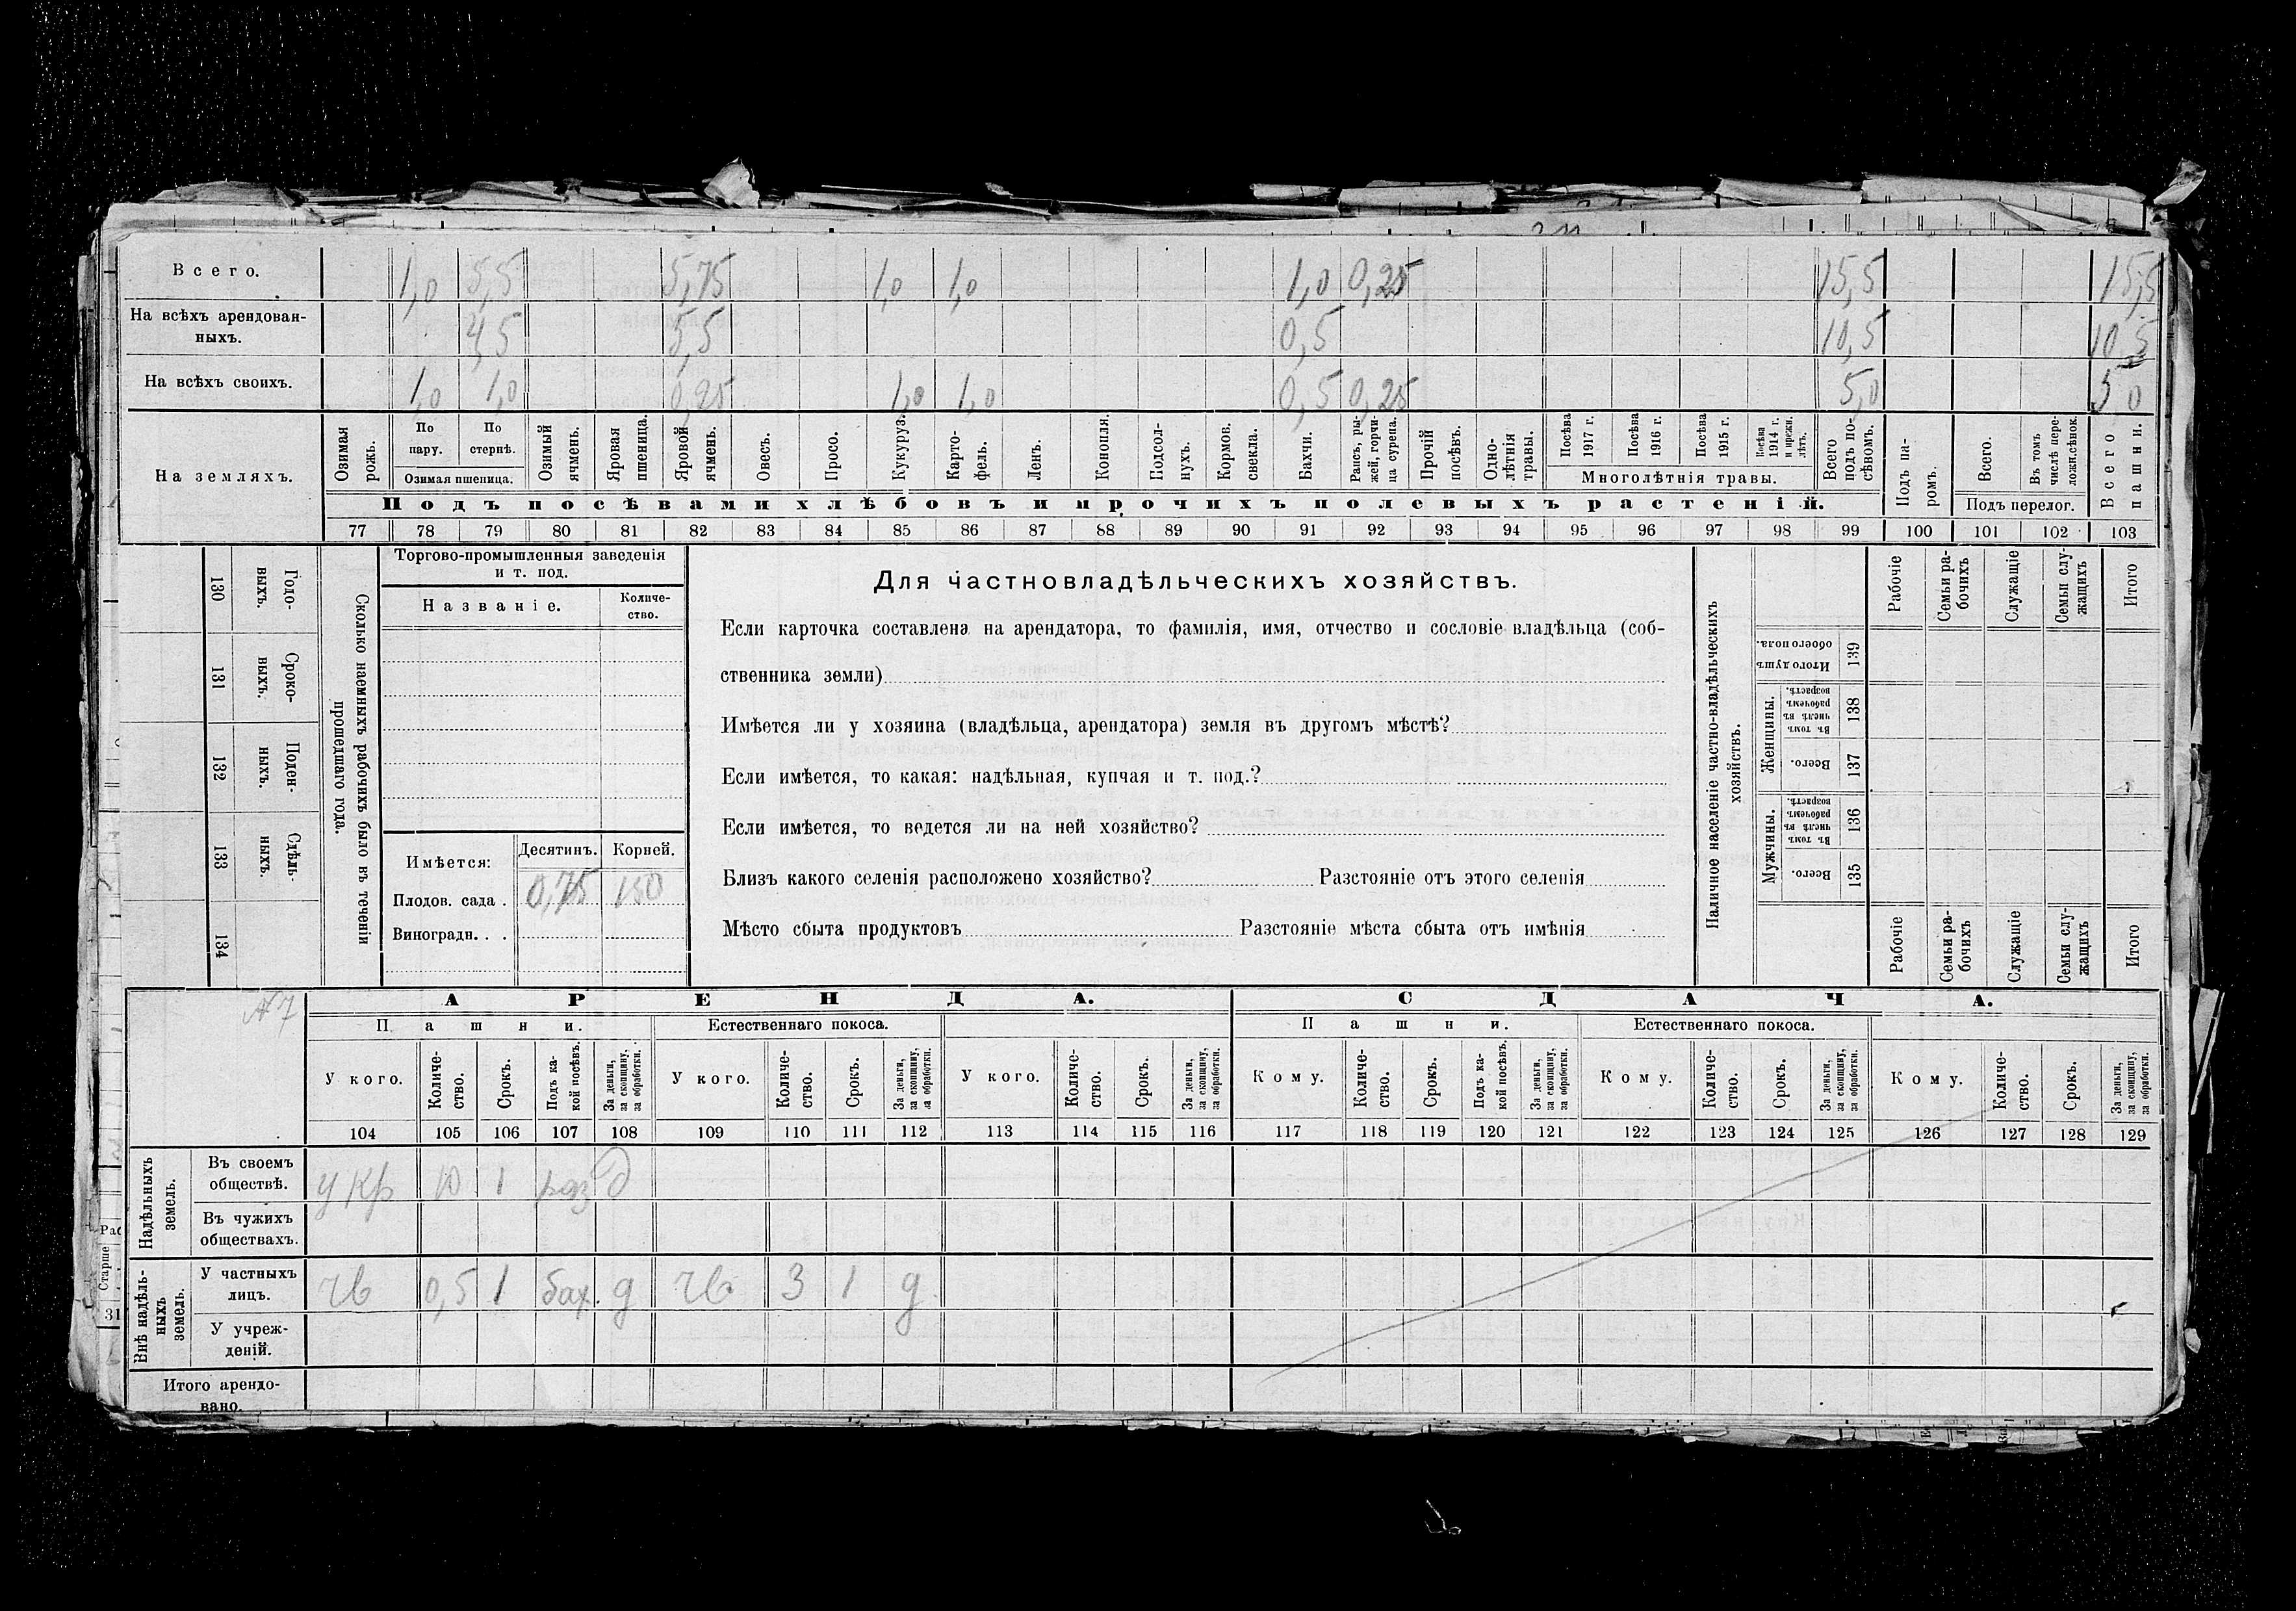 Всего. 1,0 5,5 5,75 1,0 1,0 1,0 0,25 15,5 15,5
На всѣхъ арендован-
ныхъ. 4,5 5,5 0,5 10,5 10,5
На всѣхъ своихъ. 1,0 1,0 0,25 1,0 1,0 0,5 0,25 5,0 5 0
На земляхъ.
Озимая рожь.
По пару.
По стернѣ.
Озимая пшеница.
Озимый ячмень.
Яровая пшеница.
Яровой ячмень.
Овесъ.
Просо.
Кукуруз.
Карто-
фель.
Ленъ.
Конопля.
Подсол-
нухъ.
Кормов. свекла.
Бахчи.
Рапсъ, ры-
жей, горчи-
ца сурепа.
Прочій посѣвъ.
Одно-
лѣтнія травы.
Посѣва 1917 г.
Посѣва 1916 г.
Посѣва 1915 г.
Посѣва 1914 г. и прежн. лѣтъ.
Многолѣтнія травы.
Всего подъ по-
сѣвомъ.
Подъ па-
ромъ.
Всего.
Въ томъ числѣ пере-
ложн.сѣнок.
Подъ перелог.
Всего пашни.
Подъ посѣвами хлѣбовъ и прочихъ полевыхъ растеній.
77 78 79 80 81 82 83 84 85 86 87 88 89 90 91 92 93 94 95 96 97 98 99 100 101 102 103
130 Годо-
выхъ.
131 Сроко-
выхъ.
132 Поден-
ныхъ.
133 Сдѣль-
ныхъ.
134
Сколько наемныхъ рабочихъ было въ теченіи
прошедшаго года.
Торгово-промышленныя заведенія
и т. под.
Названіе.
Количе-
ство.
Имѣется: Десятинъ. Корней.
Плодов. сада . 0,75 150
Виноградн. . .
Для частновладѣльческихъ хозяйствъ.
Если карточка составлена на арендатора, то фамилія, имя, отчество и сословіе владѣльца (соб-
ственника земли)
Имѣется ли у хозяина (владѣльца, арендатора) земля въ другомъ мѣстѣ?
Если имѣется, то какая: надѣльная, купчая и т. под.?
Если имѣется, то ведется ли на ней хозяйство?
Близъ какого селенія расположено хозяйство? Разстояніе отъ этого селенія
Мѣсто сбыта продуктовъ Разстояніе мѣста сбыта отъ имѣнія
Наличное населеніе частно-владѣльческихъ
хозяйствъ.
Рабочіе
Семьи ра-
бочихъ
Служащіе
Семьи слу-
жащихъ
Итого
Итого душъ обоего пола. 139
Женщины.
Въ томъ числѣ въ рабочемъ возрастѣ. 138
Всего. 137
Мужчины.
Въ томъ числѣ въ рабочемъ возрастѣ. 136
Всего. 135
Рабочіе
Семьи ра-
бочихъ
Служащіе
Семьи слу-
жащихъ
Итого
№ 7
АРЕНДА. СДАЧА.
Пашни. Естественнаго покоса. Пашни. Естественнаго покоса.
У кого.
Количе-
ство.
Срокъ.
Подъ ка-
кой посѣвъ.
За деньги, за скопщину, за обработки.
У кого.
Количе-
ство.
Срокъ.
За деньги, за скопщину, за обработки.
У кого.
Количе-
ство.
Срокъ.
За деньги, за скопщину, за обработки.
Кому.
Количе-
ство.
Срокъ.
Подъ ка-
кой посѣвъ.
За деньги, за скопщину, за обработки.
Кому.
Количе-
ство.
Срокъ.
За деньги, за скопщину, за обработки.
Кому.
Количе-
ство.
Срокъ.
За деньги, за скопщину, за обработки.
104 105 106 107 108 109 110 111 112 113 114 115 116 117 118 119 120 121 122 123 124 125 126 127 128 129
Надѣльныхъ
земель.
Въ своемъ
обществѣ. у кр 10 1 раз д
Въ чужихъ
обществахъ.
Внѣ надѣль-
ныхъ
земель.
У частныхъ
лицъ. чв 0,5 1 бах. д чв 3 1 д
У учреж-
деній.
Итого арендо-
вано.
Старше
31